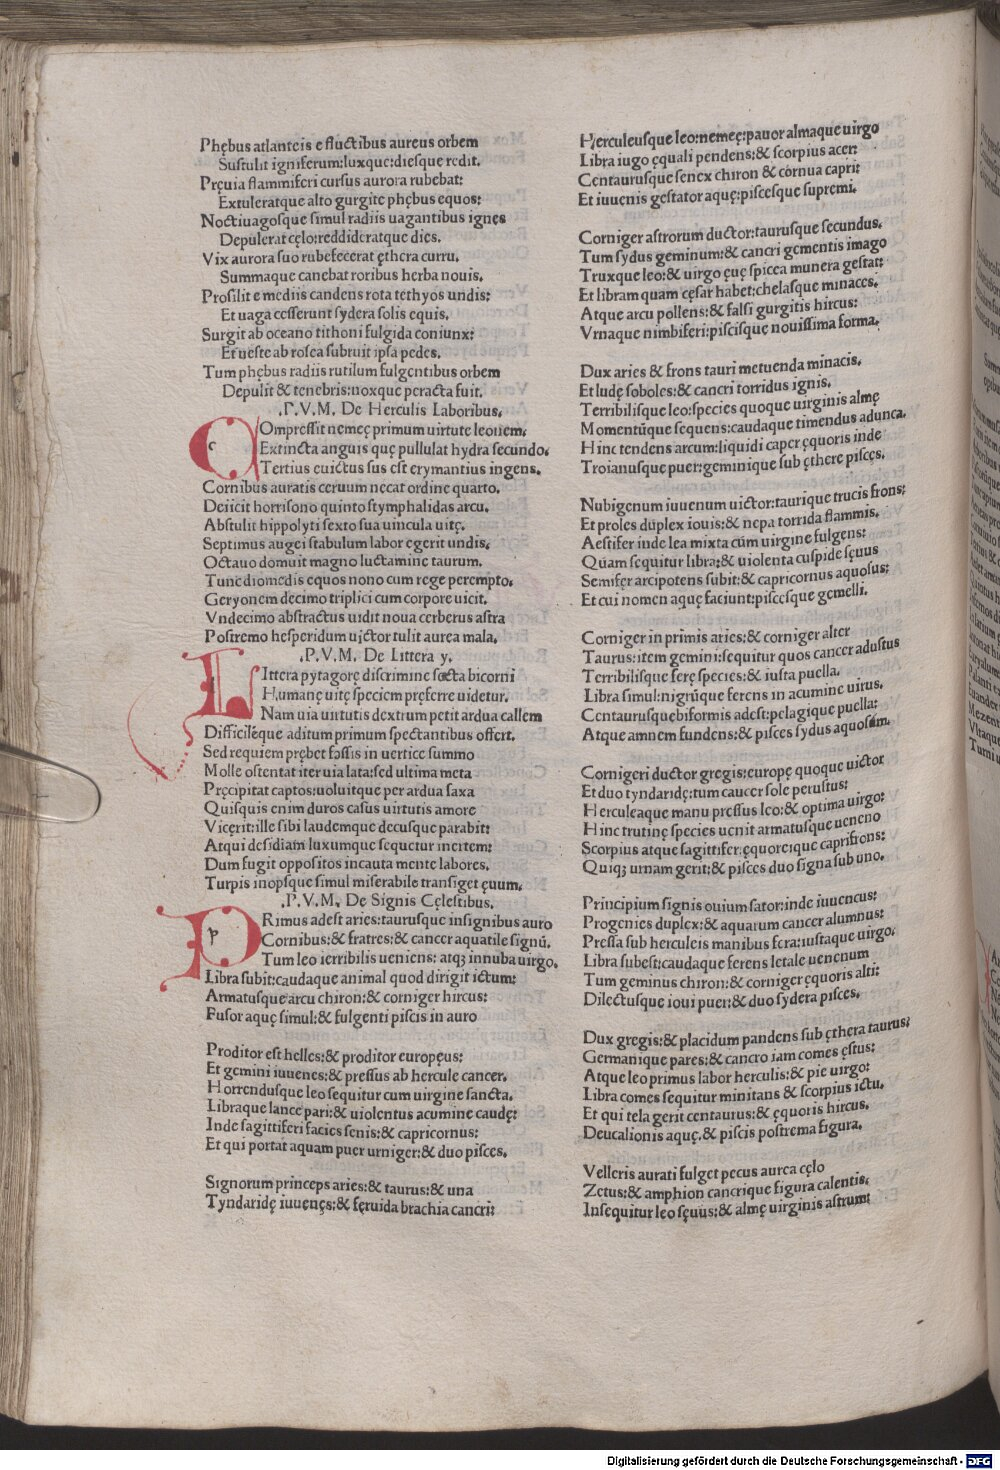 Phębus atlanteis e fluctibus aureus orbem
Sustulit igniferum:luxque:diesque redit.
Pręuia flammiferi cursus aurora rubebat:
Extuleratque alto gurgite phębus equos:
Noctiuagosque simul radiis uagantibus ignes
Depulerat cęlo:reddideratque dies.
Vix aurora suo rubefecerat ęthera curru.
Summaque canebat roribus herba nouis.
Prosilit e mediis candens rota tethyos undis:
Et uaga cesserunt sydera solis equis.
Surgit ab oceano tithoni fulgida coniunx:
Et ueste ab rosea subruit ipsa pedes.
Tum phębus radiis rutilum fulgentibus orbem
Depulit & tenebris:noxque peracta fuit.
.P.V.M. De Herculis Laboribus.
COmpressit nemeę primum uirtute leonem.
Extincta anguis quę pullulat hydra secundo.
Tertius euictus sus est erymantius ingens.
Cornibus auratis ceruum necat ordine quarto.
Deiicit horrisono quinto stymphalidas arcu.
Abstulit hippolyti sexto sua uincula uitę.
Septimus augei stabulum labor egerit undis.
Octauo domuit magno luctamine taurum.
Tunc diomedis equos nono cum rege perempto.
Geryonem decimo triplici cum corpore uicit.
Vndecimo abstractus uidit noua cerberus astra
Postremo hesperidum uictor tulit aurea mala.
.P.V.M. De Littera y.
LIttera pytagorę discrimine secta bicorni
Humanę uitę speciem pręferre uidetur.
Nam uia uirtutis dextrum petit ardua callem
Difficiléque aditum primum spectantibus offert.
Sed requiem prębet fessis in uertice summo
Molle ostentat iter uia lata:sed ultima meta
Pręcipitat captos:uoluitque per ardua saxa
Quisquis enim duros casus uirtutis amore
Vicerit:ille sibi laudemque decusque parabit:
Atqui desidiam luxumque sequetur inertem:
Dum fugit oppositos incauta mente labores.
Turpis inopsque simul miserabile transiget ęuum.
.P.V.M. De Signis Cęlestibus.
PRimus adest aries:taurusque insignibus auro
Cornibus:& fratres:& cancer aquatile signū.
Tum leo terribilis ueniens: atqꝫ innuba uirgo.
Libra subit:caudaque animal quod dirigit ictum:
Armatusque arcu chiron:& corniger hircus:
Fusor aquę simul:& fulgenti piscis in auro
Proditor est helles:& proditor europęus:
Et gemini iuuenes:& pressus ab hercule cancer.
Horrendusque leo sequitur cum uirgine sancta.
Libraque lance pari:& uiolentus acumine caudę:
Inde sagittiferi facies senis:& capricornus:
Et qui portat aquam puer urniger:& duo pisces.
Signorum princeps aries:& taurus:& una
Tyndaridę iuuenęs:& feruida brachia cancri:
Herculeusque leo:nemeę:pauor almaque uirgo
Libra iugo ęquali pendens:& scorpius acer:
Centaurusque senex chiron & cornua capri:
Et iuuenis gestator aquę:piscesque supremi.
Corniger astrorum ductor:taurusque secundus.
Tum sydus geminum:& cancri gementis imago
Truxque leo:& uirgo ęuę spicea munera gestat:
Et libram quam cęsar habet:chelasque minaces.
Atque arcu pollens:& falsi gurgitis hircus:
Vrnaque nimbiferi:piscisque nouissima forma.
Dux aries & frons tauri metuenda minacis.
Et ludę soboles:& cancri torridus ignis.
Terribilisque leo:species quoque uirginis almę
Momentūque sequens:caudaque timendus adunca.
Hinc tendens arcum:liquidi caper ęquoris inde
Troianusque puer:geminique sub ęthere pisces.
Nubigenum iuuenum uictor:taurique trucis frons:
Et proles duplex iouis:& nepa torrida flammis.
Aestifer inde lea mixta cūm uirgine fulgens:
Quam sequitur libra:& uiolenta cuspide sęuus
Semifer arcipotens subit:& capricornus aquosus:
Et cui nomen aquę faciunt:piscesque gemelli.
Corniger in primis aries:& corniger alter
Taurus:item gemini:sequitur quos cancer adustus
Terribilisque ferę species:& iusta puella.
Libra simul:nigrūque ferens in acumine uirus.
Centaurusquebiformis adest:pelagique puella:
Atque amnem fundens:& pisces sydus aquosum.
Cornigeri ductor gregis:europę quoque uictor
Et duo tyndaridę:tum caucer sole perustus:
Herculeaque manu pressus leo:& optima uirgo:
Hinc trutinę species uenit armatusque ueneno
Scorpius atque sagittifer:ęquoreique caprifrons:
Quiqꝫ urnam gerit:& pisces duo signa sub uno.
Principium signis ouium sator:inde iuuencus:
Progenies duplex:& aquarum cancer alumnus:
Pressa sub herculeis manibus fera:iustaque uirgo.
Libra subest:caudaque ferens letale uenenum
Tum geminus chiron:& corniger ęquoris alti:
Dilectusque ioui puer:& duo sydera pisces.
Dux gregis:& placidum pandens sub ęthera taurus:
Germanique pares:& cancro iam comes ęstus:
Atque leo primus labor herculis:& pie uirgo:
Libra comes sequitur minitans & scorpius ictu.
Et qui tela gerit centaurus:& ęquoris hircus.
Deucalionis aquę.& piscis postrema figura.
Velleris aurati fulget pecus aurea cęlo
Zetus:& amphion cancrique figura calentis.
Insequitur leo sęuus:& almę uirginis astrum:
Digitalisierung gefördert durch die Deutsche Forschungsgemeinschaft - DFG